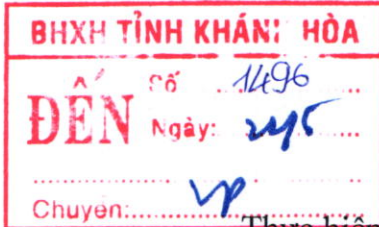 BHXH TỈNH KHÁNH HÒA
ĐẾN
Số 1496
Ngày: 24/5
Chuyên: VP
Thực hiện